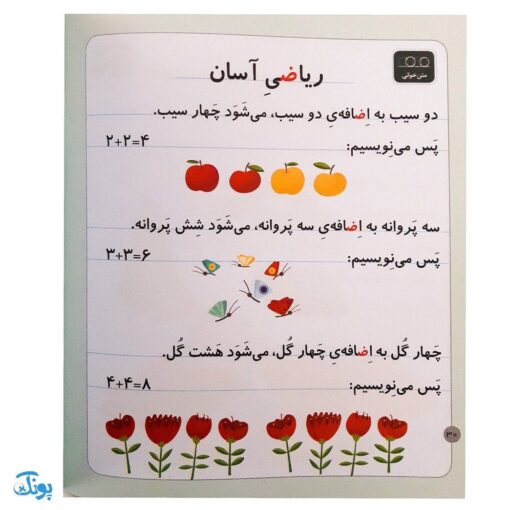 متن‌خوانی
ریاضیِ آسان
دو سیب به اِضافه‌یِ دو سیب، می‌شَوَد چَهار سیب.
پَس می‌نِویسیم:
۲+۲=۴
سه پَروانه به اِضافه‌یِ سه پَروانه، می‌شَوَد شِش پَروانه.
پَس می‌نِویسیم:
۳+۳=۶
چَهار گُل به اِضافه‌یِ چَهار گُل، می‌شَوَد هَشت گُل.
پَس می‌نِویسیم:
۴+۴=۸
۳۰
پونک